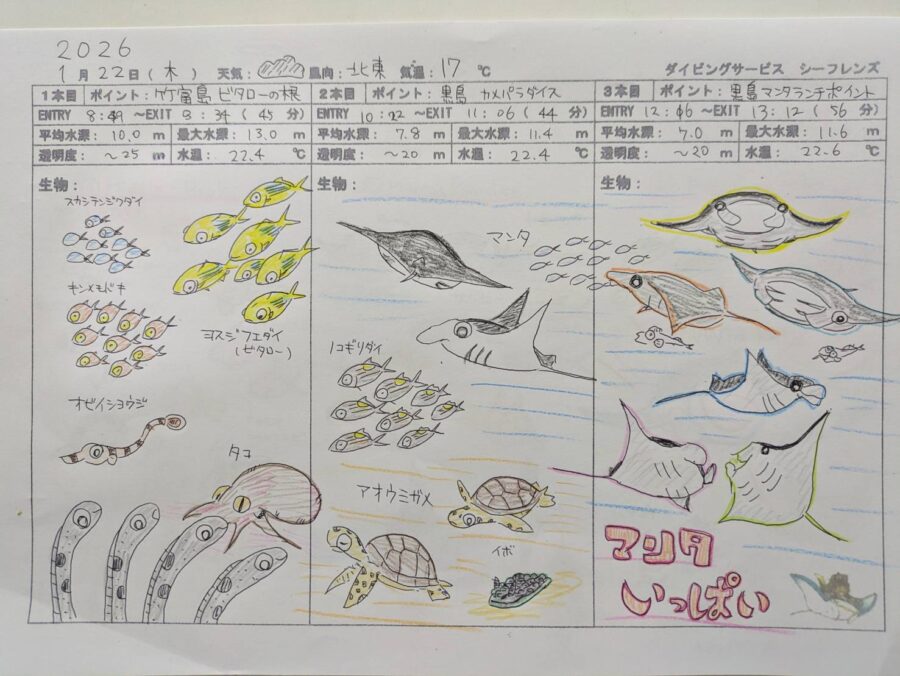 2026
1月22日(木) 天気: 風向:北東 気温:17℃ ダイビングサービス シーフレンズ
1本目 ポイント:竹富島 ビタローの根
ENTRY 8:49 ~EXIT 9:34 (45分)
平均水深: 10.0 m 最大水深: 13.0 m
透明度: ~25 m 水温: 22.4 ℃
生物:
スカシテンジクダイ
キンメモドキ
ヨスジフエダイ
(ビタロー)
オビイシヨウジ
タコ
2本目 ポイント:黒島 カメパラダイス
ENTRY 10:22 ~EXIT 11:06 (44分)
平均水深: 7.8 m 最大水深: 11.4 m
透明度: ~20 m 水温: 22.4 ℃
生物:
マンタ
ノコギリダイ
アオウミガメ
イボ
3本目 ポイント:黒島 マンタランチポイント
ENTRY 12:16 ~EXIT 13:12 (56分)
平均水深: 7.0 m 最大水深: 11.6 m
透明度: ~20 m 水温: 22.6 ℃
生物:
マンタ
いっぱい